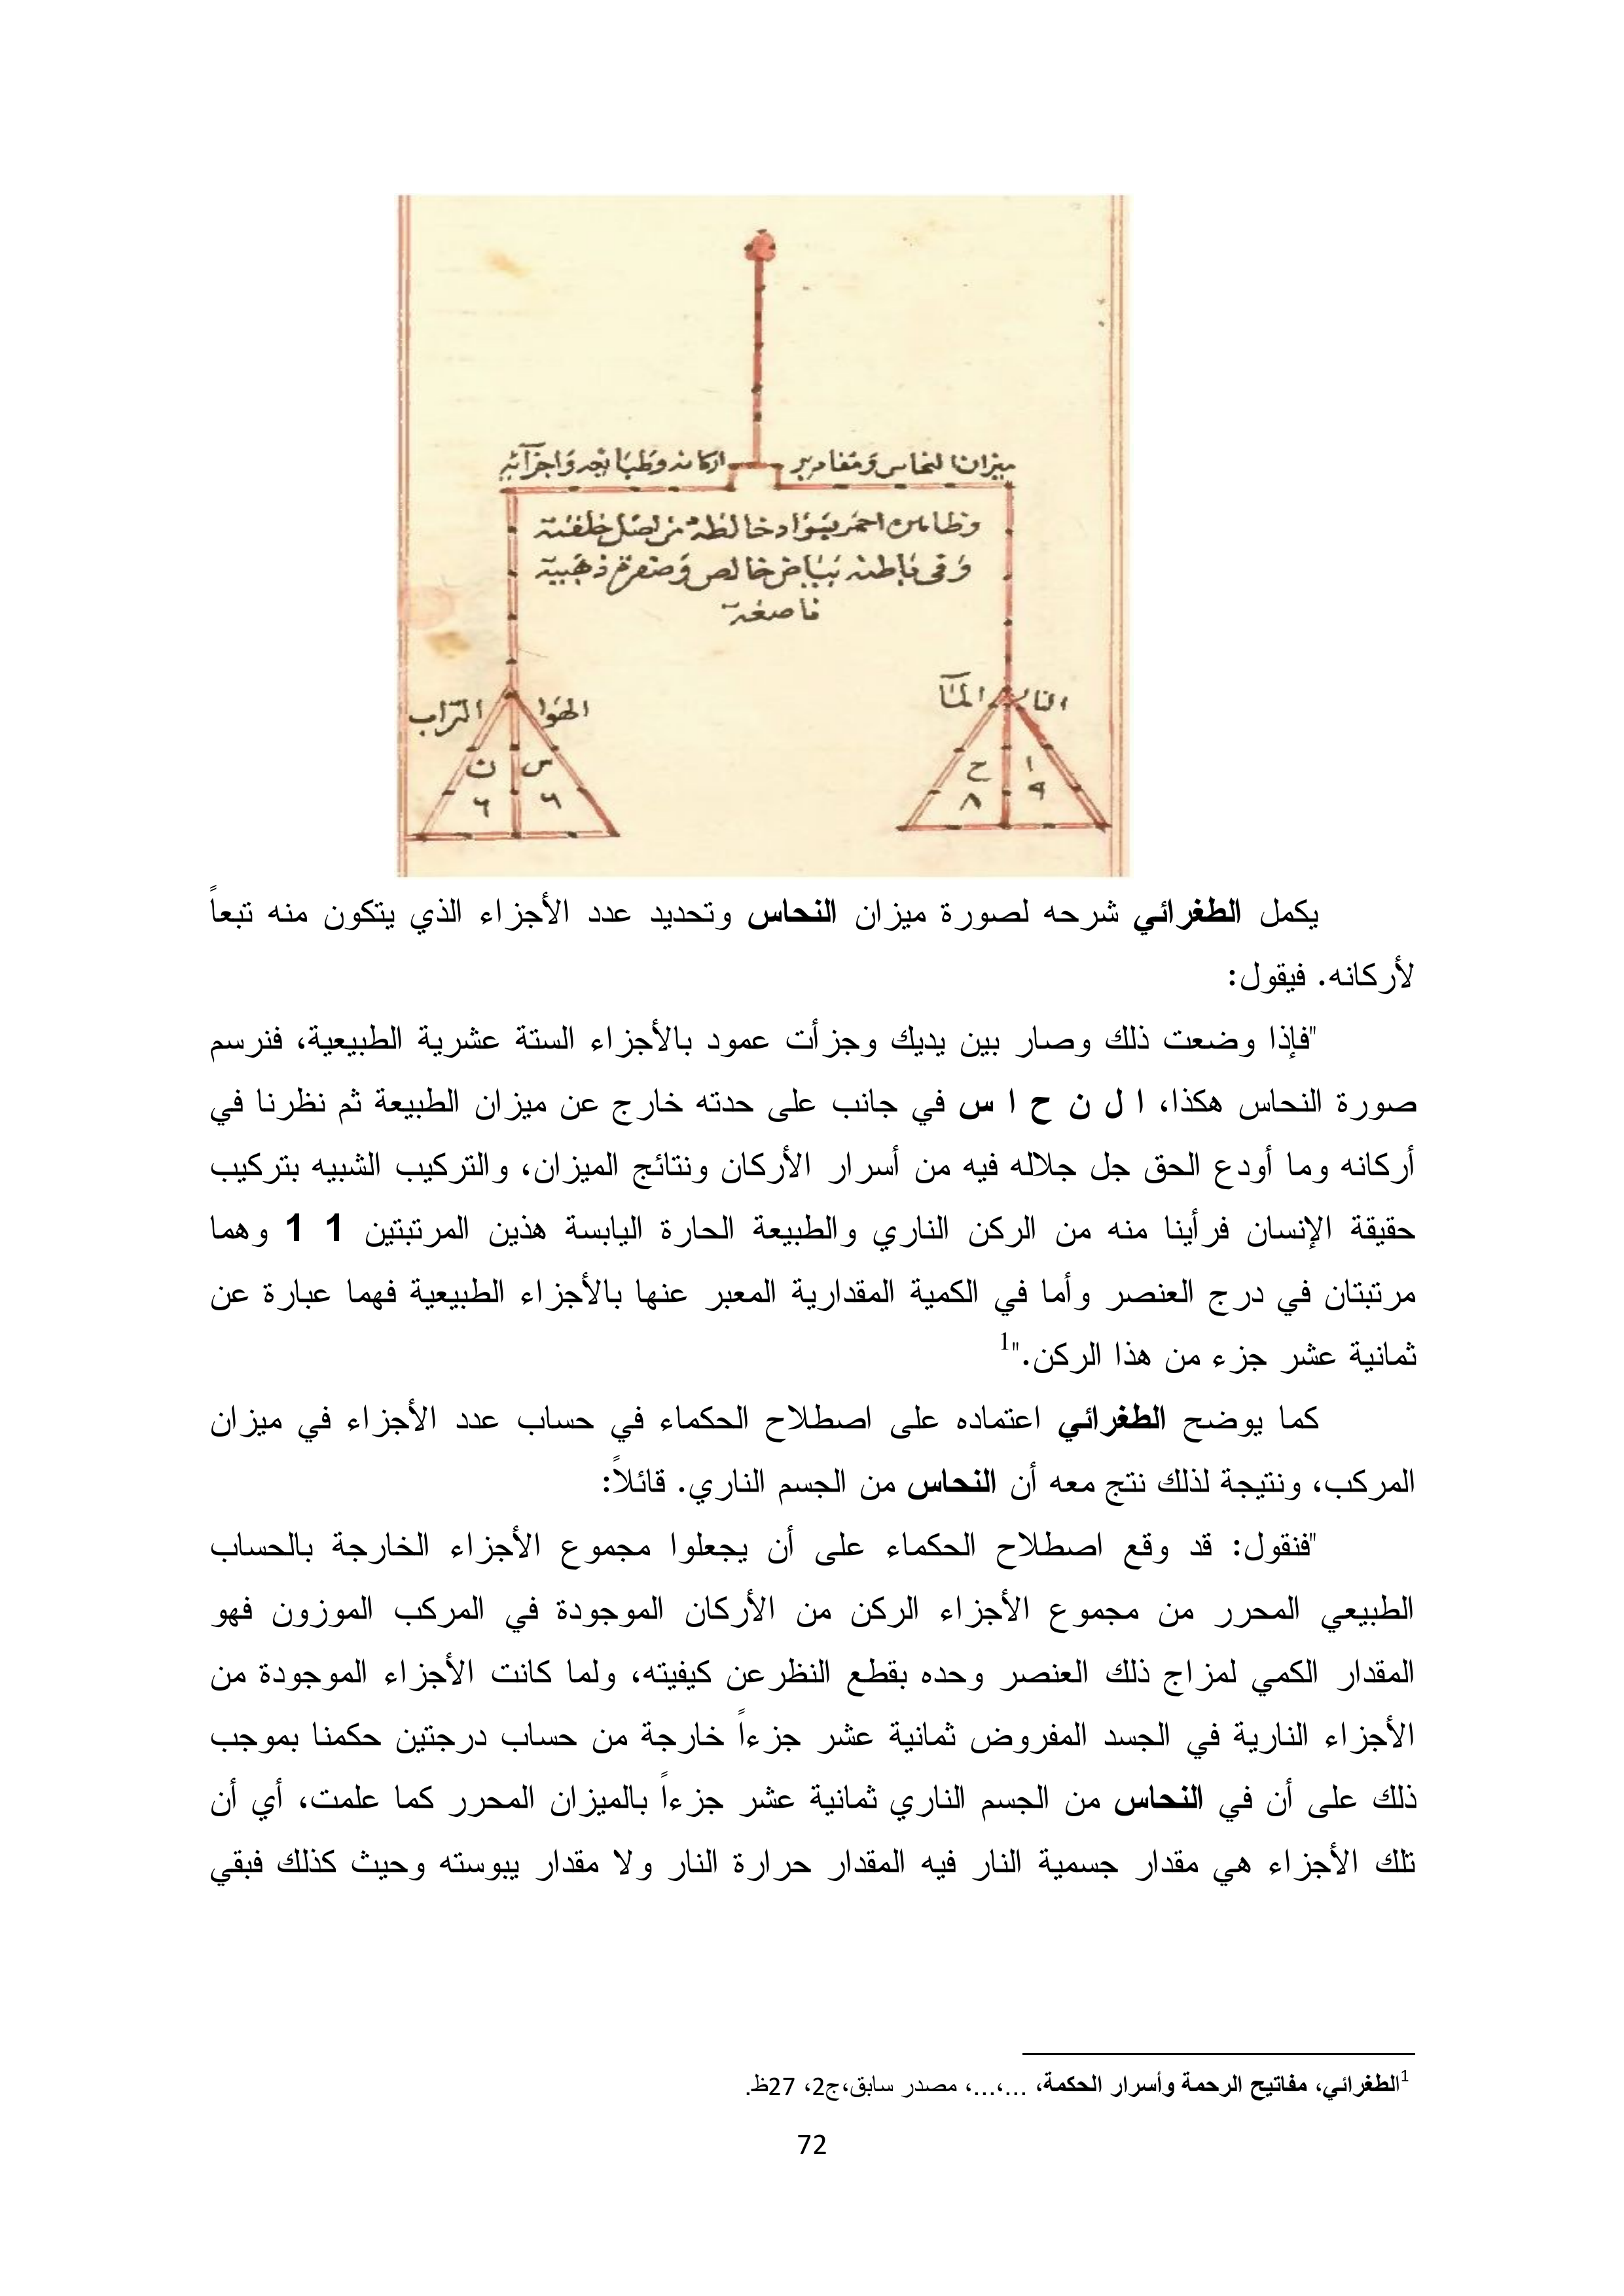 ميزان النحاس ومقادير اركانه وطبائعه واجزآئه
وظاهره احمر بسواد خالطه من اصل خلقته
وفى باطنه بياض خالص وصفرة ذهبية
ناصعة
النار المآ الهوا التراب
ا ح س ن
٩ ٨ ٦ ٦
يكمل الطغرائي شرحه لصورة ميزان النحاس وتحديد عدد الأجزاء الذي يتكون منه تبعاً
لأركانه. فيقول:
"فإذا وضعت ذلك وصار بين يديك وجزأت عمود بالأجزاء الستة عشرية الطبيعية، فنرسم
صورة النحاس هكذا، ا ل ن ح ا س في جانب على حدته خارج عن ميزان الطبيعة ثم نظرنا في
أركانه وما أودع الحق جل جلاله فيه من أسرار الأركان ونتائج الميزان، والتركيب الشبيه بتركيب
حقيقة الإنسان فرأينا منه من الركن الناري والطبيعة الحارة اليابسة هذين المرتبتين 1 1 وهما
مرتبتان في درج العنصر وأما في الكمية المقدارية المعبر عنها بالأجزاء الطبيعية فهما عبارة عن
ثمانية عشر جزء من هذا الركن."1
كما يوضح الطغرائي اعتماده على اصطلاح الحكماء في حساب عدد الأجزاء في ميزان
المركب، ونتيجة لذلك نتج معه أن النحاس من الجسم الناري. قائلاً:
"فنقول: قد وقع اصطلاح الحكماء على أن يجعلوا مجموع الأجزاء الخارجة بالحساب
الطبيعي المحرر من مجموع الأجزاء الركن من الأركان الموجودة في المركب الموزون فهو
المقدار الكمي لمزاج ذلك العنصر وحده بقطع النظرعن كيفيته، ولما كانت الأجزاء الموجودة من
الأجزاء النارية في الجسد المفروض ثمانية عشر جزءاً خارجة من حساب درجتين حكمنا بموجب
ذلك على أن في النحاس من الجسم الناري ثمانية عشر جزءاً بالميزان المحرر كما علمت، أي أن
تلك الأجزاء هي مقدار جسمية النار فيه المقدار حرارة النار ولا مقدار يبوسته وحيث كذلك فبقي
1الطغرائي، مفاتيح الرحمة وأسرار الحكمة، ...،...، مصدر سابق،ج2، 27ظ.
72